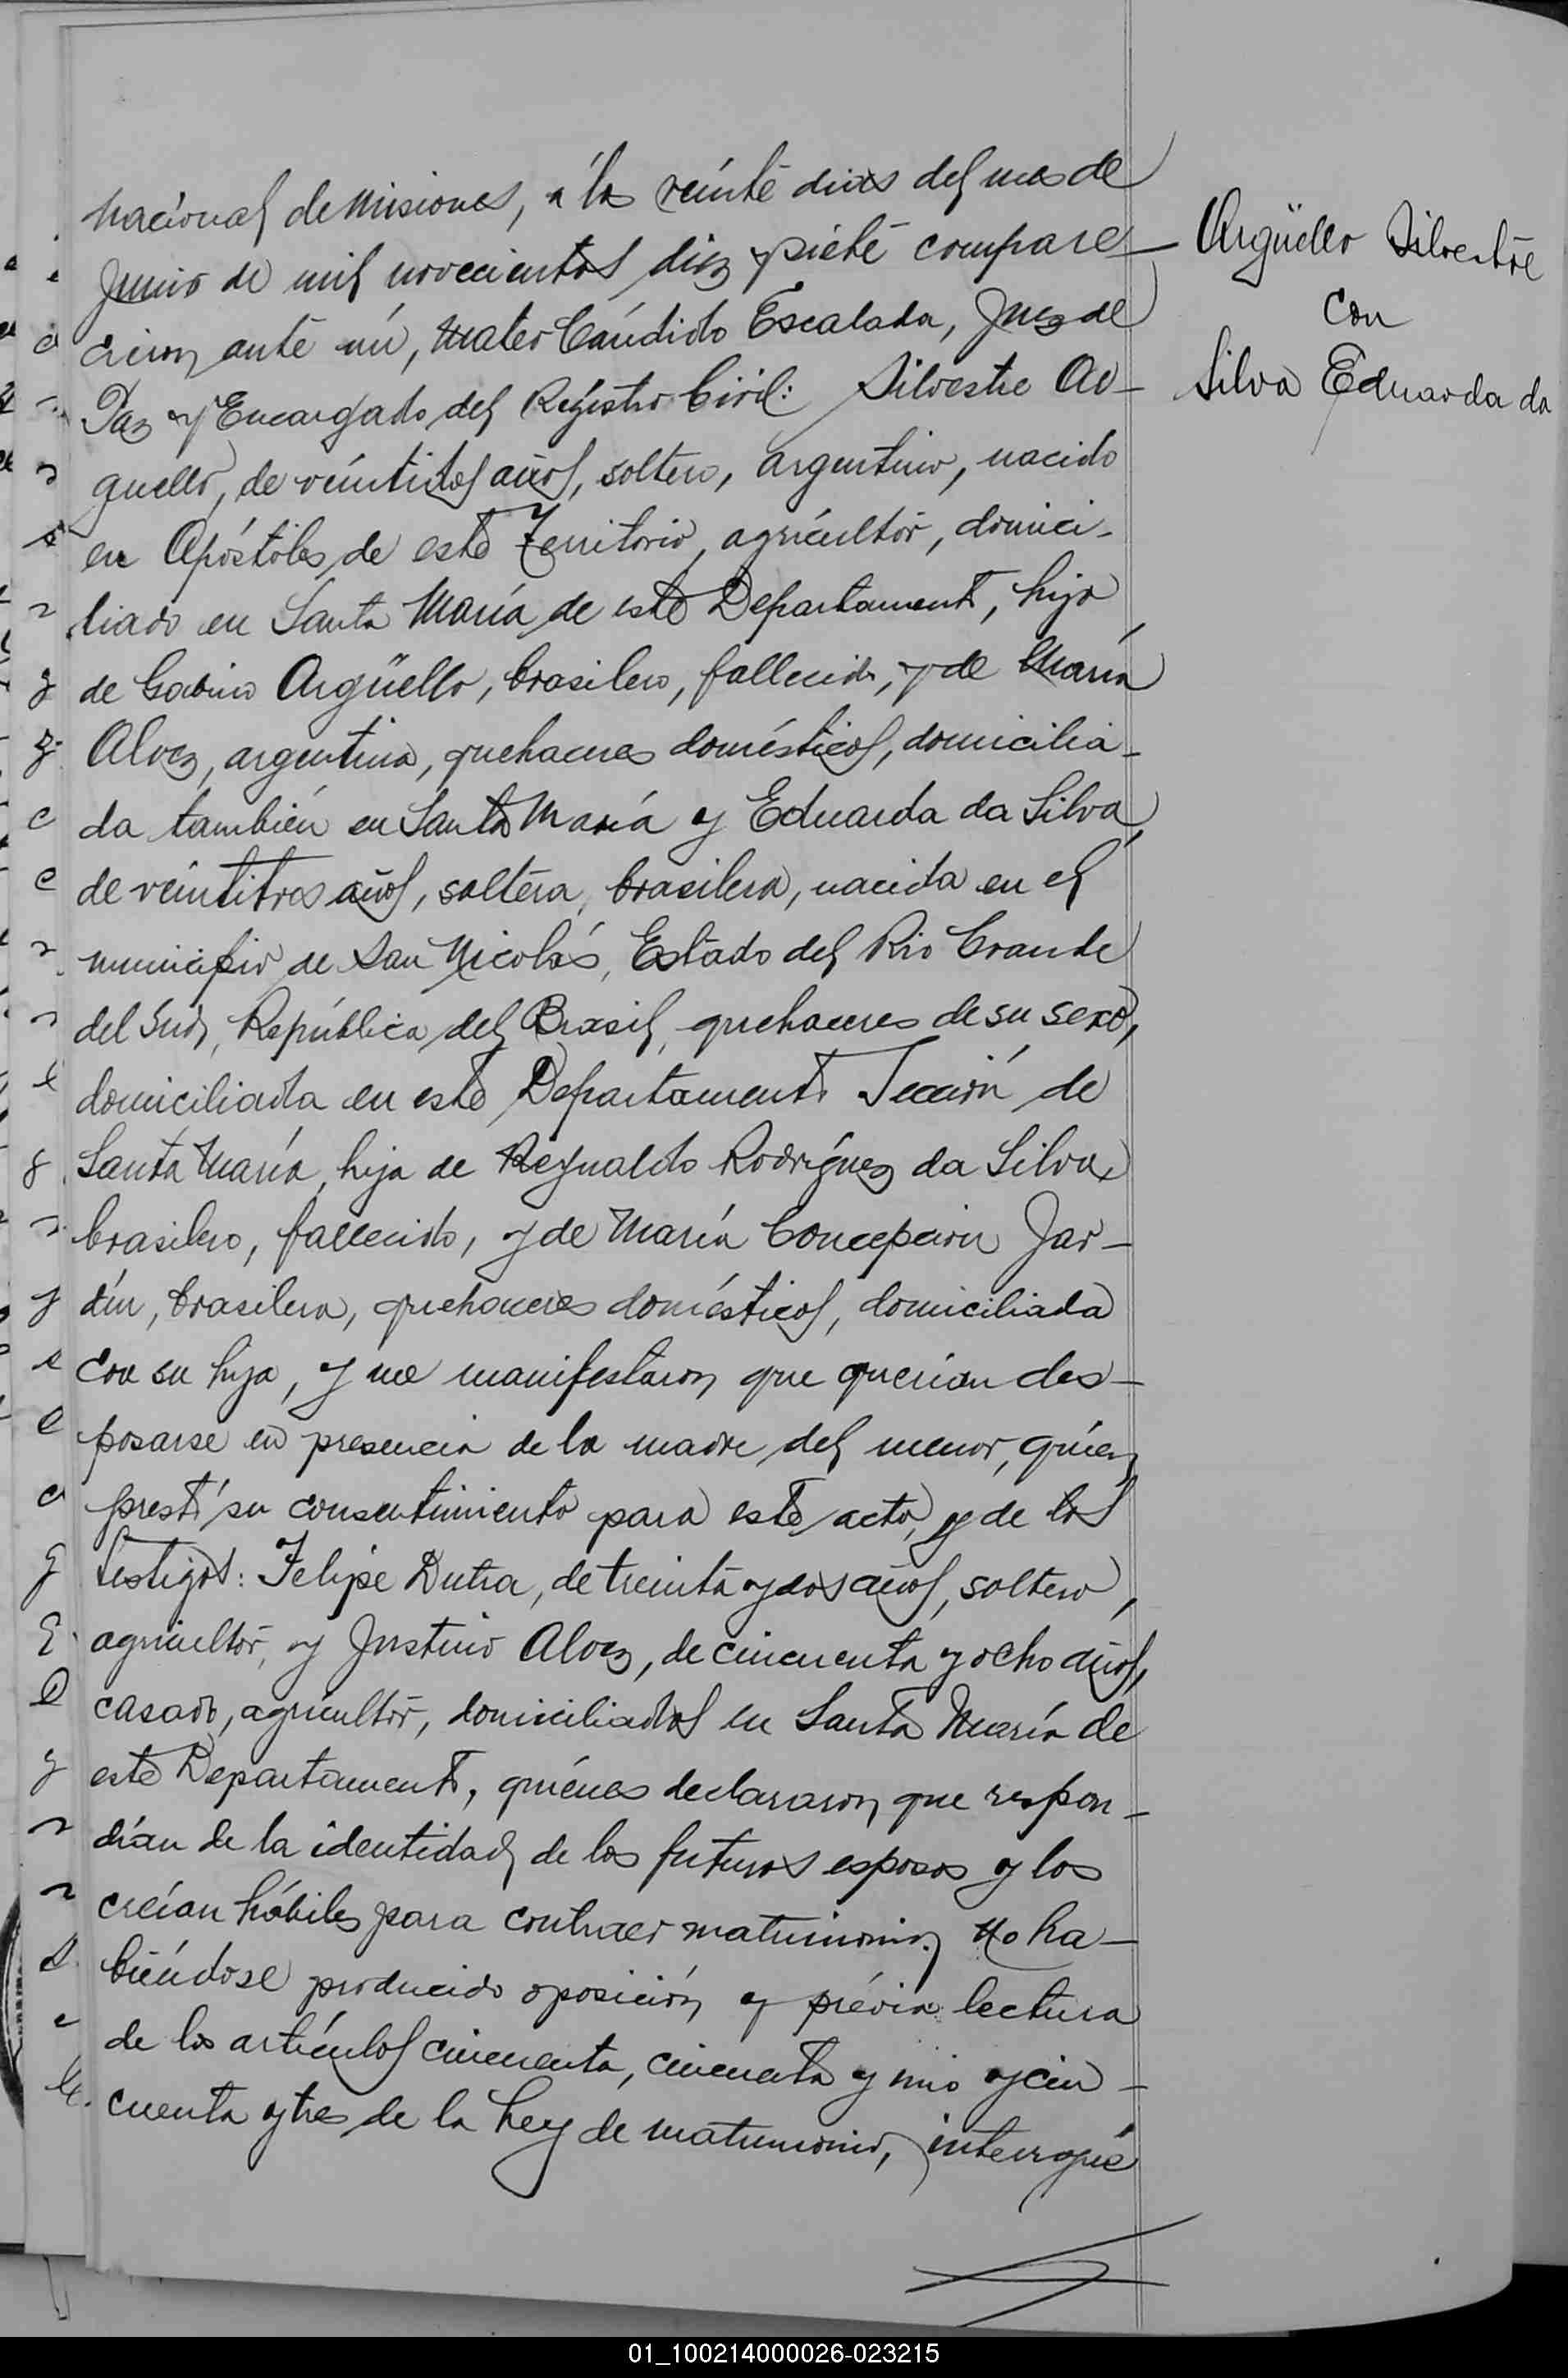 Nacional de Misiones, a los veinte dias del mes de
Junio de mil novecientos diez y siete compare-
cieron ante mí, Mateo Cándido Escalada, Juez de
Paz y Encargado del Registro Civil: Silvestre Ar-
guello, de veintidos años, soltero, argentino, nacido
en Apóstoles de este Territorio, agricultor, domici-
liado en Santa María de este Departamento, hijo
de Gabino Argüello, brasilero, fallecido, y de María
Alvez, argentina, quehaceres domésticos, domicilia-
da también en Santa María y Eduarda da Silva,
de veintitres años, soltera, brasilera, nacida en el
municipio de San Nicolás, Estado del Rio Grande
del Sud, República del Brasil, quehaceres de su sexo,
domiciliada en este Departamento Sección de
Santa María, hija de Reynaldo Rodríguez da Silva,
brasilero, fallecido, y de María Concepcion Jar-
dín, brasilera, quehaceres domésticos, domiciliada
con su hija, y me manifestaron que querian des-
posarse en presencia de la madre del menor, quién
prestó su consentimiento para este acto, y de los
testigos: Felipe Dutra, de treinta y dos años, soltero,
agricultor, y Justino Alvez, de cincuenta y ocho años,
casado, agricultor, domiciliados en Santa María de
este Departamento, quiénes declararon que respon-
dían de la identidad de los futuros esposos y los
creían hábiles para contraer matrimonio. No ha-
biéndose producido oposición y prévia lectura
de los artículos cincuenta, cincuenta y uno y cin-
cuenta y tres de la Ley de matrimonio, interrogué
Argüello Silvestre
con
Silva Eduarda da
01_100214000026-023215